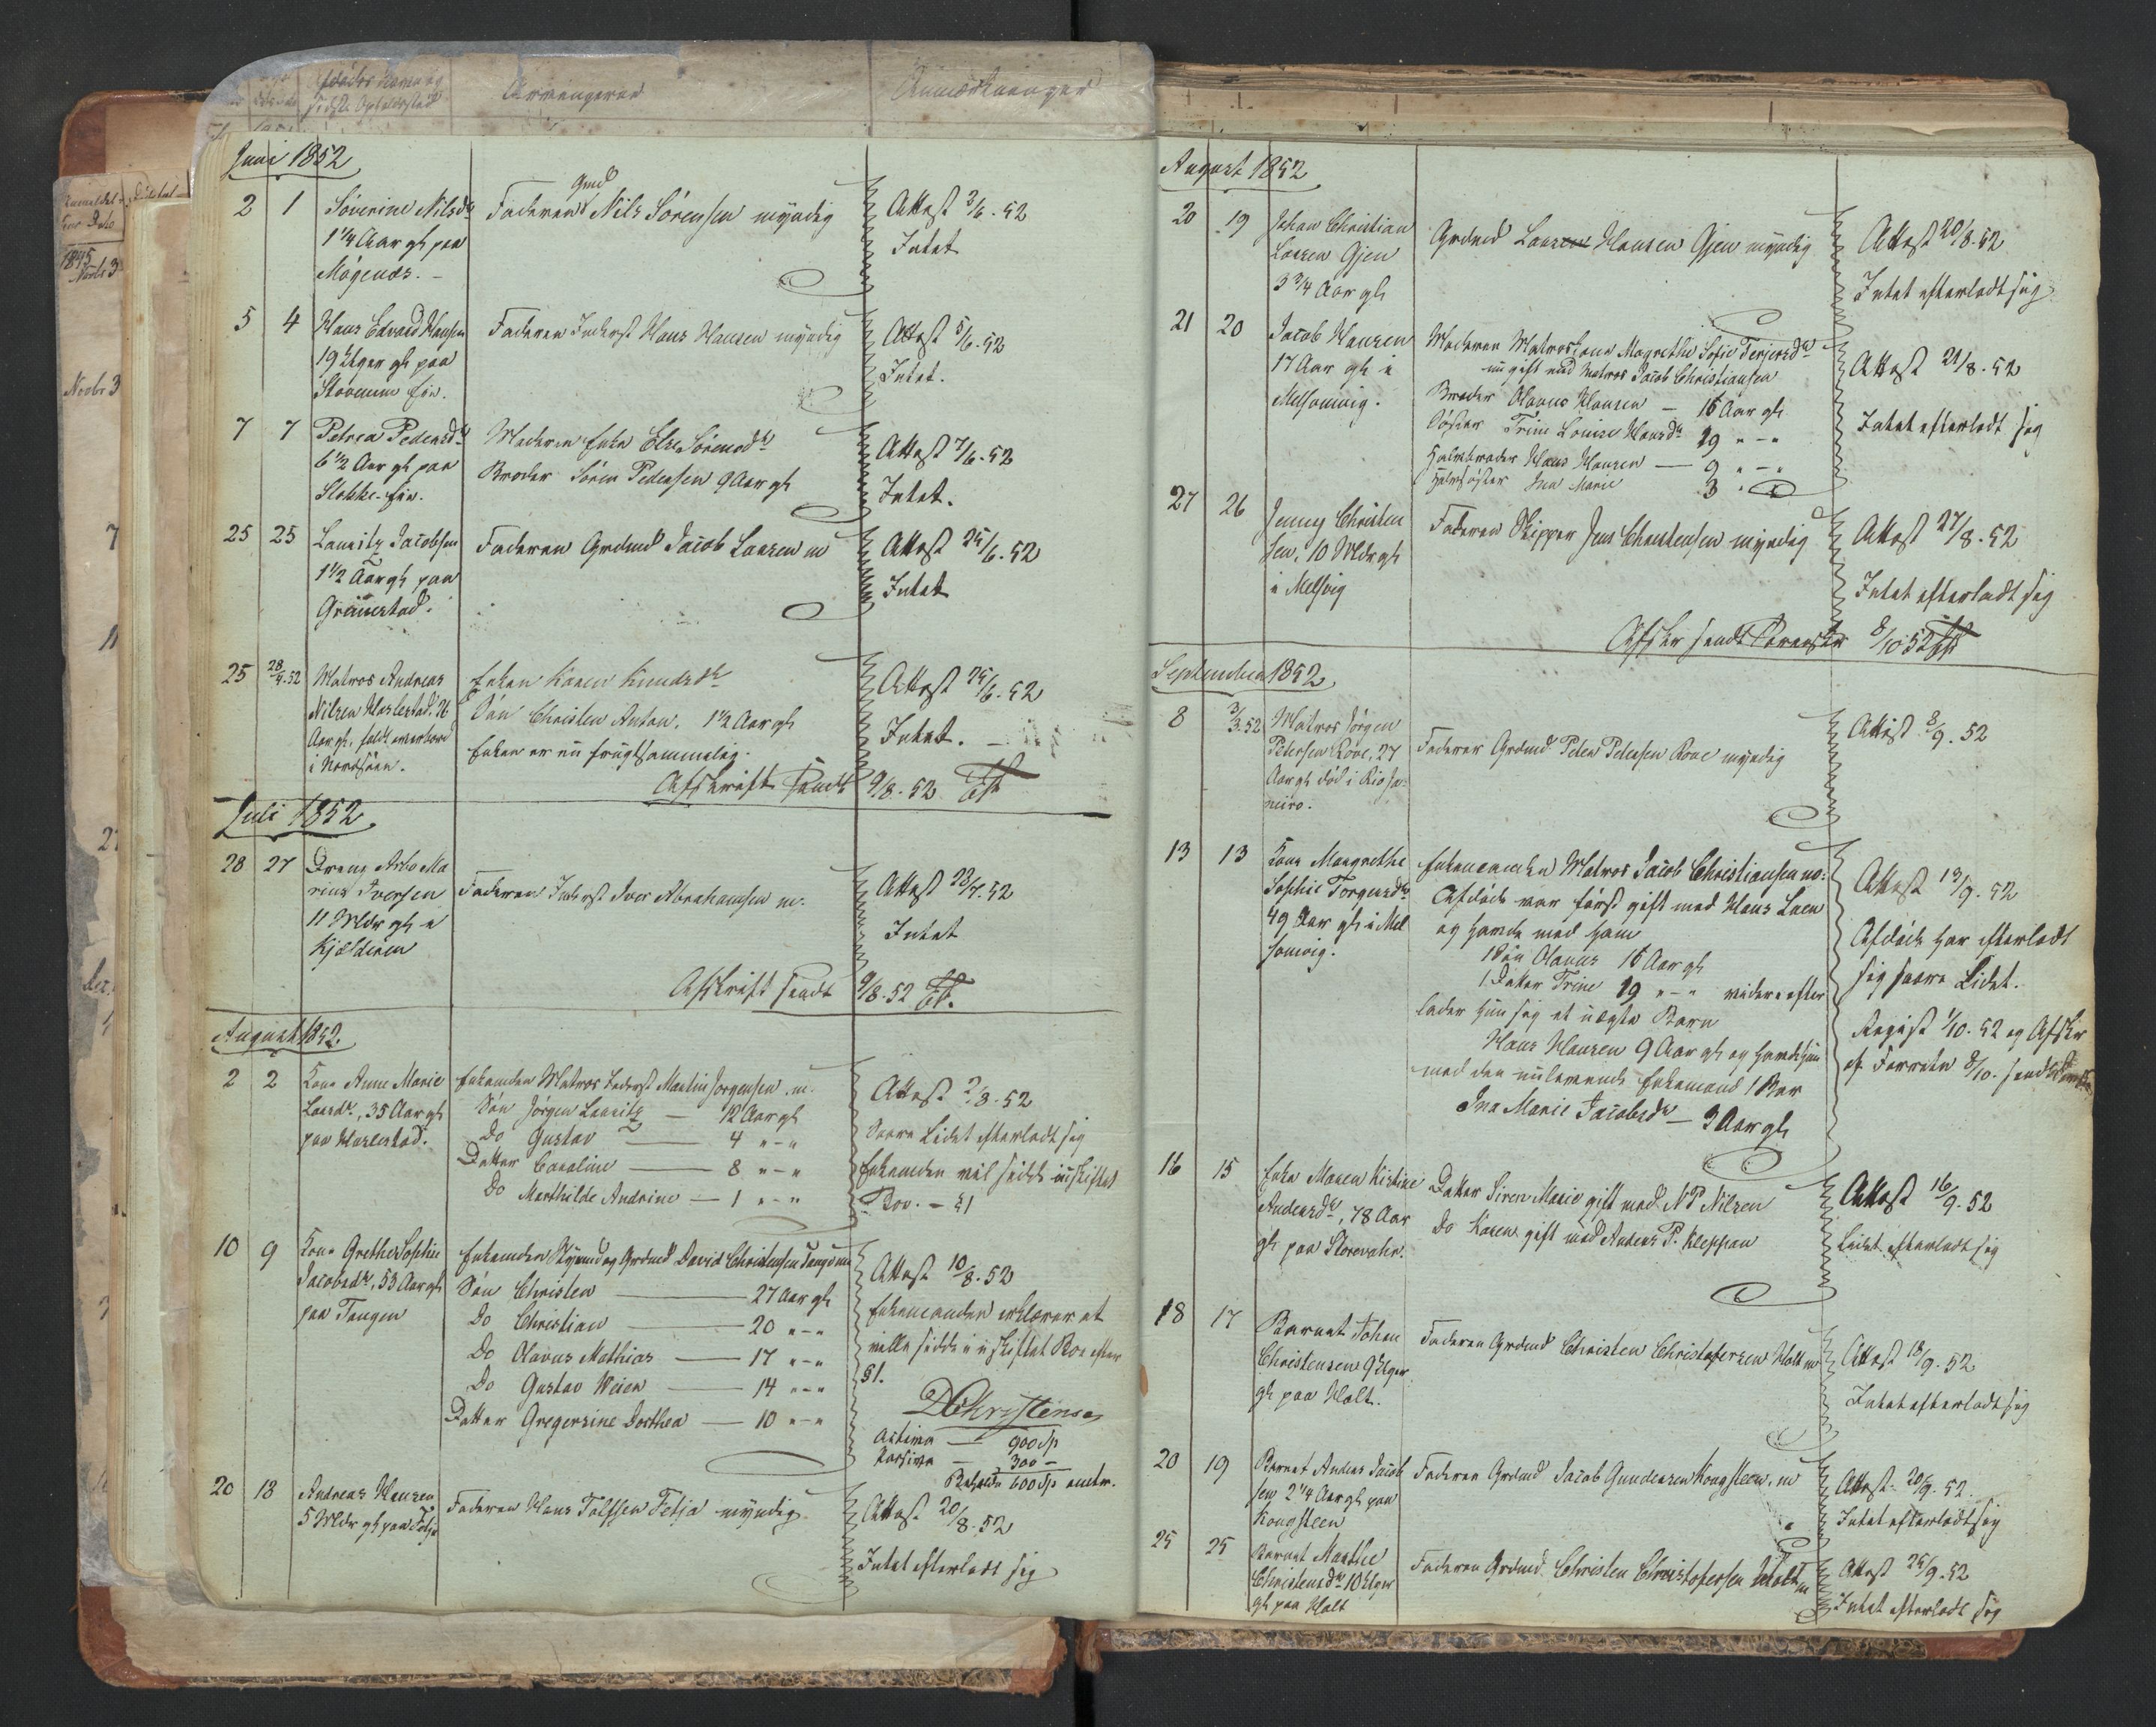 Arvingerne
Anmærkninger
Juni 1852
2 1 Søverine Nilsdr
1 1/4 Aar gl paa
Møgenæs.
Faderen Grdmd Nils Sørensen myndig
Attest 2/6.52
Intet
5 4 Hans Edvard Hansen
19 Uger gl paa
Faderen Inderst Hans Hansen myndig
Attest 5/6.52
Intet.
7 7 Petrea Pedersdr
6 1/2 Aar gl paa
Stokke
Moderen Enke Else Sørensdr
Broder Søren Pedersen 9 Aar gl
Attest 7/6.52
Intet.
25 25 Lauritz Jacobsen
1 1/2 Aar gl paa
Grimestad.
Faderen Grdmd Jacob Larsen m
Attest 25/6.52
Intet
25 28/4.52 Matros Andreas
Nilsen Harlestad, 26
Aar gl, faldt overbord
i Nordsøen.
Enken Karen Knudsdr
Søn Christen Anton, 1 1/2 Aar gl
Enken er nu frugtsommelig.
Attest 25/6.52
Intet.
Afskrift sendt 9/8.52
Juli 1852
28 27 Dreng
Iversen
11 Mdr gl
Kjælderen
Faderen Inderst Iver Abrahamsen m.
Attest 28/7.52
Intet
Afskrift sendt 9/8.52
August 1852.
2 2 Kone Anne Marie
Larsdr, 35 Aar gl
paa Harlestad.
Enkemden Matros Inderst Martin Jørgensen m.
Søn Jørgen Lauritz — 12 Aar gl
Do Gustav — 4 " – "
Datter Caroline — 8 " – "
Do Marthilde Andrine — 1 " – "
Attest 2/8.52
Saare Lidet efterladt sig
Enkemden vil sidde i uskiftet
Boe. – §1
10 9 Kone Grethe Sophie
Jacobsdr, 53 Aar gl
paa Tangen
Enkemden Grdmd David Christensen Tangen
Søn Christen — 27 Aar gl
Do Christian — 20 " – "
Do Olavus Mathias — 17 " – "
Do Gustav Weien — 14 " – "
Datter Gregersine Dorthea — 10 " – "
Attest 10/8.52
Enkemanden erklærer at
ville sidde i uskiftet Boe efter
§1.
DChristensen
Activa — 900 Sp
Passiva — 300 –
Beholdn 600 Sp omtr.
20 18 Andreas Hansen
5 Mdr gl paa Fetja
Faderen Hans Tolfsen Fetja myndig
Attest 20/8.52
Intet efterladt sig
August 1852
20 19 Johan Christian
Larsen Gjen
3 3/4 Aar gl
Grdmd Lars Hansen Gjen myndig
Attest 20/8.52
Intet efterladt sig
21 20 Jacob Hansen
17 Aar gl i
Melsomvig.
Moderen Matroskone Magrethe Sofie Terjersdr
nu gift med Matros Jacob Christiansen
Broder Olavus Hansen — 15 Aar gl
Søster Trine Louise Hansdr 19 " – "
Halvbroder Hans Hansen — 9 " – "
Halvsøster Ina Marie 3
Attest 21/8.52
Intet efterladt sig
27 26 Jenny Christen
sen, 10 Mdr gl
i Melsvig
Faderen Skipper Jens Christensen myndig
Attest 27/8.52
Intet efterladt sig
Afskr sendt Sorensk 8/10.52
September 1852
8 3/3.52 Matros Jørgen
Petersen Roae, 27
Aar gl død i Rio Ja-
neiro.
Faderen Grdmd Peder Pedersen Roae myndig
Attest 8/9.52
13 13 Kone Margrethe
Sophie Torgersdr
49 Aar gl i Mel
somvig.
Enkemanden Matros Jacob Christiansen m:
Afdøde var først gift med Hans Laen
og havde med ham
1 Søn Olavus 15 Aar gl
1 Datter Trine 19 " – " videre efter
lader hun sig et uægte Barn
Hans Hansen 9 Aar gl og havde hun
med den nulevende Enkemand 1 Bar
Ina Marie Jacobsdr — 3 Aar gl
Attest 13/9.52
Afdøde har efterladt
sig saare Lidet.
Regist 1/10.52 og Afskr
af Forretn 8/10.
16 15 Enke Maren Kirstine
Andersdr, 78 Aar
gl paa Storevahr.
Datter Siren Marie gift med N P Nilsen
Do Karen gift med Anders P. Kleppan
Attest 16/9.52
Lidet efterladt sig
18 17 Barnet Johan
Christensen 9 Uger
gl paa Holt.
Faderen Grdmd Christen Christofersen Holt m
Attest 18/9.52
Intet efterladt sig
20 19 Barnet Anders Jacob
sen 2 1/4 Aar gl paa
Kongsteen
Faderen Grdmd Jacob Gundersen Kongsteen. m
Attest 20/9.52.
Intet efterladt sig
25 25 Barnet Marthe
Christensdr 10 Uger
gl paa Holt
Faderen Grdmd Christen Christofersen Holt m
Attest 25/9.52
Intet efterladt sig